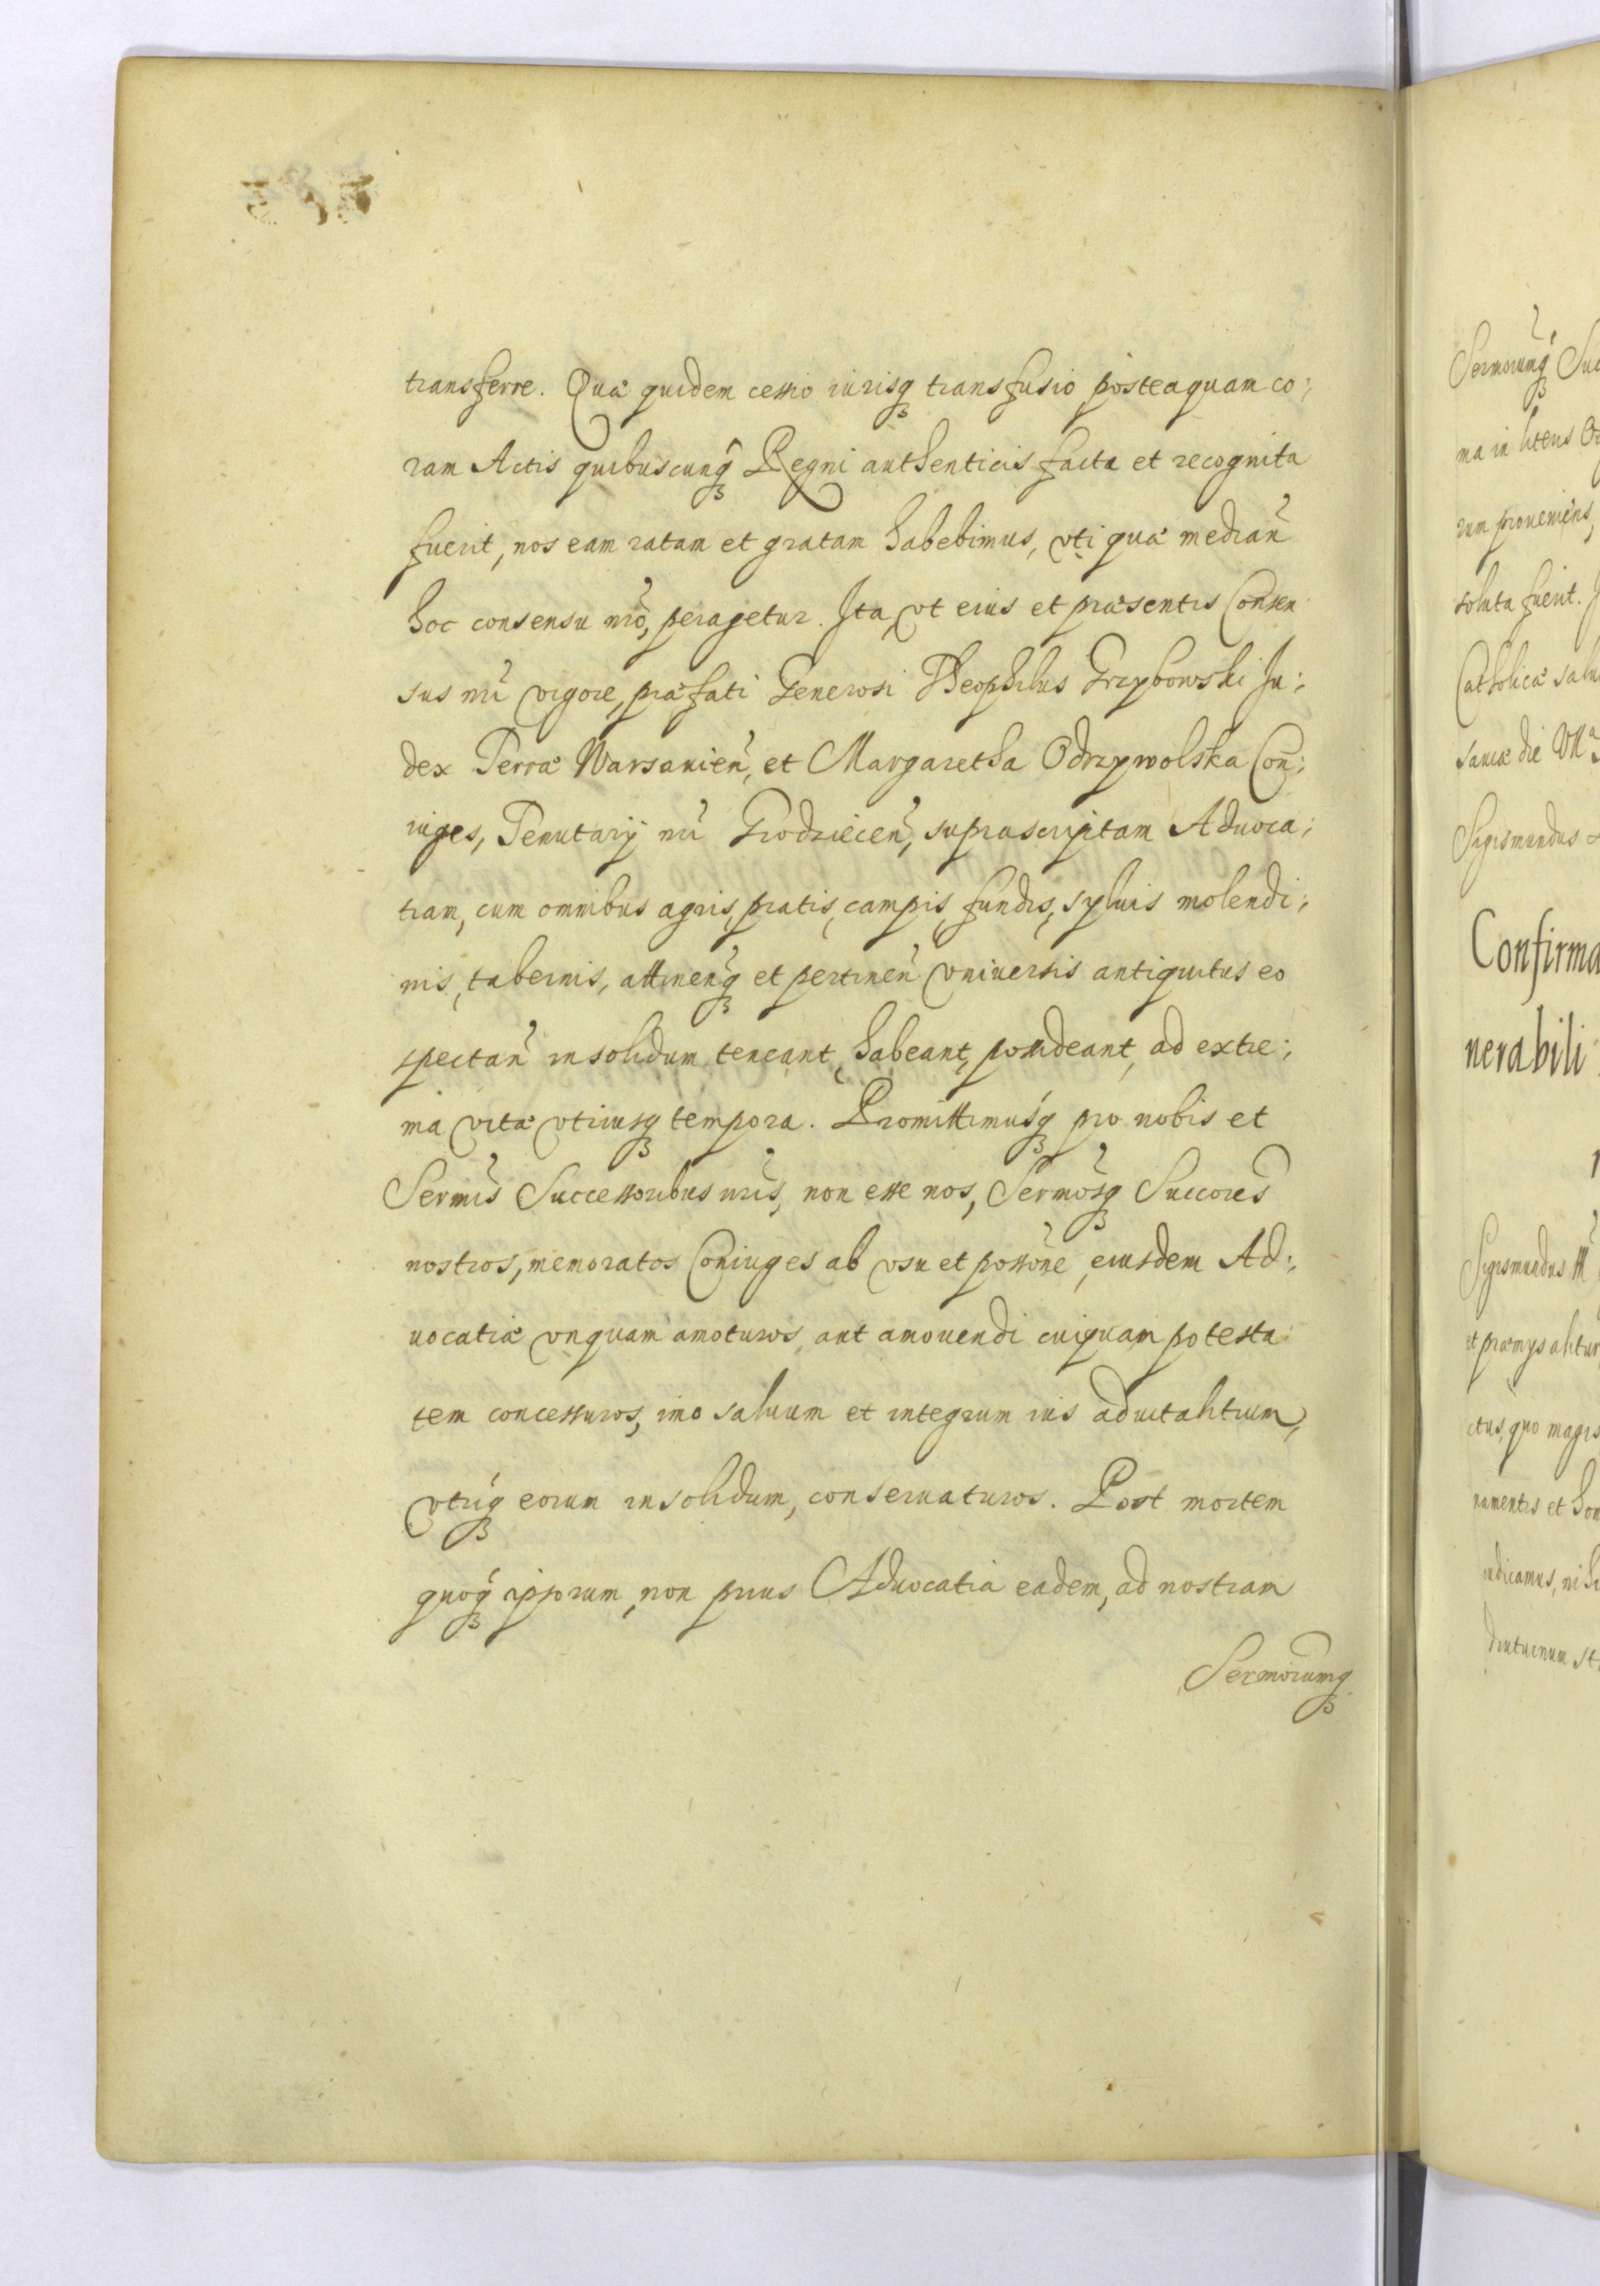 transferre. Quæ quidem cessio iurisq₃ transfusio posteaquam co:
ram Actis quibuscunq₃ Regni authenticis facta et recognita
fuerit, nos eam ratam et gratam habebimus, vti quæ median̄
hoc consensu nr̄o, peragetur. Ita vt eius et præsentis Consen
sus nr̄i vigore, præfati Generosi Theophilus Grzybowski Iu:
dex Terræ Warsauien̄, et Margaretha Odrzywolska Con:
iuges, Tenutarij nr̄i Grodziecen̄, suprascriptam Aduoca:
tiam, cum omnibus agris, pratis, campis, fundis, syluis molendi:
nis, tabernis, attinen̄q₃ et pertinen̄ vniuersis antiquitus eo
spectan̄ insolidum teneant, habeant, possideant, ad extre:
ma vitæ vtriusq₃ tempora. Promittimusq₃ pro nobis et
Sermīs Successoribus nr̄is, non esse nos, Sermōsq₃ Succores̄
nostros, memoratos Coniuges ab vsu et possōne, eiusdem Ad:
uocatiæ vnquam amoturos, aut amouendi cuiquam potesta
tem concessuros, imo saluum et integrum ius aduitalitium,
vtriq₃ eorum insolidum, conseruaturos. Post mortem
quoq₃ ipsorum, non prius Aduocatia eadem, ad nostram
Sermōrumq₃
Sermōrumq₃ Suc
ma in litens
rum proueniens,
soluta fuerit.
Catholicæ salu
Sigismundus
Confirma
nerabili
Sigismundus III
ctus, quo magis
namentis et hon
udicamus, nihi
diuturnum st